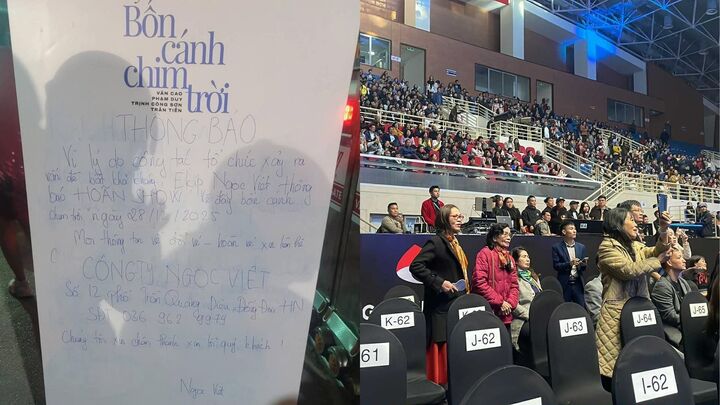 Bốn
cánh
chim
trời
VĂN CAO
PHẠM DUY
TRỊNH CÔNG SƠN
TRẦN TIẾN
THÔNG BÁO
Vì lý do công tác tổ chức xảy ra
vấn đề bất khả kháng. Ekip Ngọc Việt thông
báo HOÃN SHOW
chim trời ngày 28/12/2025
Mọi thông tin về đổi vé - hoàn vé xin liên hệ
CÔNG TY NGỌC VIỆT
Số 12 phố Trần Quang Diệu, Đống Đa, HN
SĐT 086 962
Chúng tôi xin chân thành xin lỗi quý khách!
Ngọc Việt
61
K-62
J-62
J-63
J-64
J-65
I-62
G